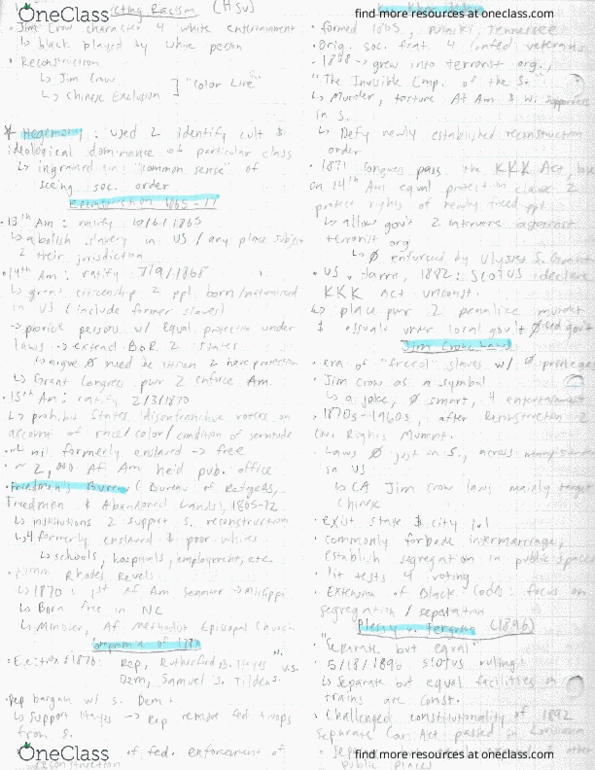 OneClass
find more resources at oneclass.com
find more resources at oneclass.com
Racism (Hsu)
• Jim Crow character 4 white entertainment
↳ black played by white person
• Reconstruction
↳ Jim Crow
↳ Chinese Exclusion
"Color Line"
* Hegemony: used 2 identify cult &
ideological dominance of particular class
↳ ingrained in "common sense" of
seeing soc. order
Reconstruction 1865-77
• 13th Am: ratify 12/6/1865
↳ abolish slavery in US / any place subject
2 their jurisdiction
• 14th Am: ratify 7/9/1868
↳ grants citizenship 2 ppl born/naturalized
in US (include former slaves)
→ provide persons w/ equal protection under
laws → extend BoR 2 states
↳ Grant Congress pwr 2 enforce Am.
• 15th Am: ratify 2/3/1870
↳ prohibit states disenfranchise voters on
account of race/color/condition of servitude
mil formerly enslaved → free
• ~ 2,000 Af Am held pub. office
• Freedmen's Bureau (Bureau of Refugees,
Freedmen & Abandoned Lands), 1865-72
↳ institutions 2 support S. reconstruction
↳ 4 formerly enslaved & poor whites
↳ schools, hospitals, employment, etc.
Rhodes Revels
↳ 1870: 1st Af Am senator → Mississippi
↳ Born free in NC
↳ Minister, Af Methodist Episcopal Church
Compromise of 1877
1876: Rep, Rutherford B. Hayes v.s.
Dem, Samuel J. Tilden
Rep bargain w/ S. Dem
↳ Support Hayes → Rep remove fed troops
from S.
of fed. enforcement of
reconstruction
• formed 1865, Pulaski, Tennessee
• Orig. soc. frat. 4 confed veterans
• 1868 → grew into terrorist org.,
"The Invisible Emp. of the S."
↳ Murder, torture Af Am & wi supporters
in S.
↳ Defy newly established reconstruction
order
• 1871 Congress pass the KKK Act,
on 14th Am equal protection clause 2
protect rights of newly freed ppl.
↳ allow gov't 2 intervene against
terrorist org
↳ Ø enforced by Ulysses S. Grant
• US v. Harris, 1882: SCOTUS declare
KKK Act unconst.
↳ place pwr 2 penalize murder
& assault under local gov't Ø fed gov't
Jim Crow Laws
• era of "freed" slaves w/ Ø privileges
• Jim Crow as a symbol
↳ a joke, Ø smart, 4 entertainment
• 1870s-1960s, after Reconstruction 2
Civ. Rights Mvmnt.
• Laws Ø just in S., across many states
in US
↳ CA Jim Crow laws mainly target
Chinese
• exist state & city lvl
• commonly forbade intermarriage,
establish segregation in public spaces
lit tests 4 voting
• Extension of Black Codes focus on
segregation / separation
Plessy v. Ferguson (1896)
"Separate but equal"
• 5/18/1896 SCOTUS ruling:
↳ Separate but equal facilities on
trains are const.
• Challenged constitutionality of 1892
Separate Car Act passed in Louisiana
other
public places
OneClass
find more resources at oneclass.com